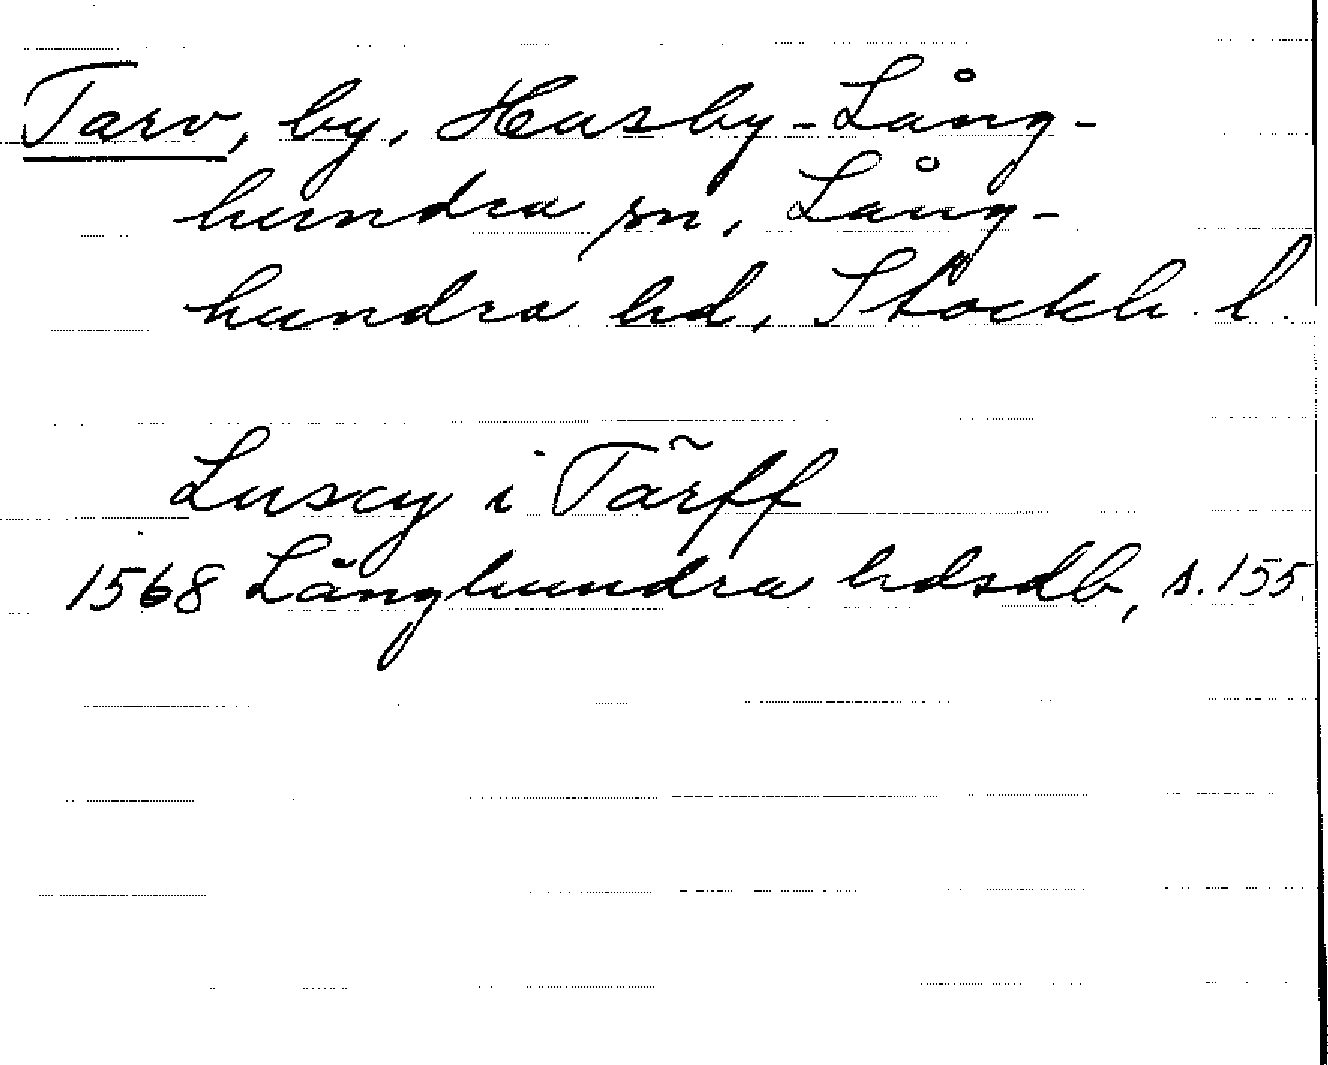 Tarv, by, Husby-Lång-
hundra sn, Lång-
hundra hd, Stockh. l.
Luscy i Tãrff
1568 Långhundra hdsdb, s. 155